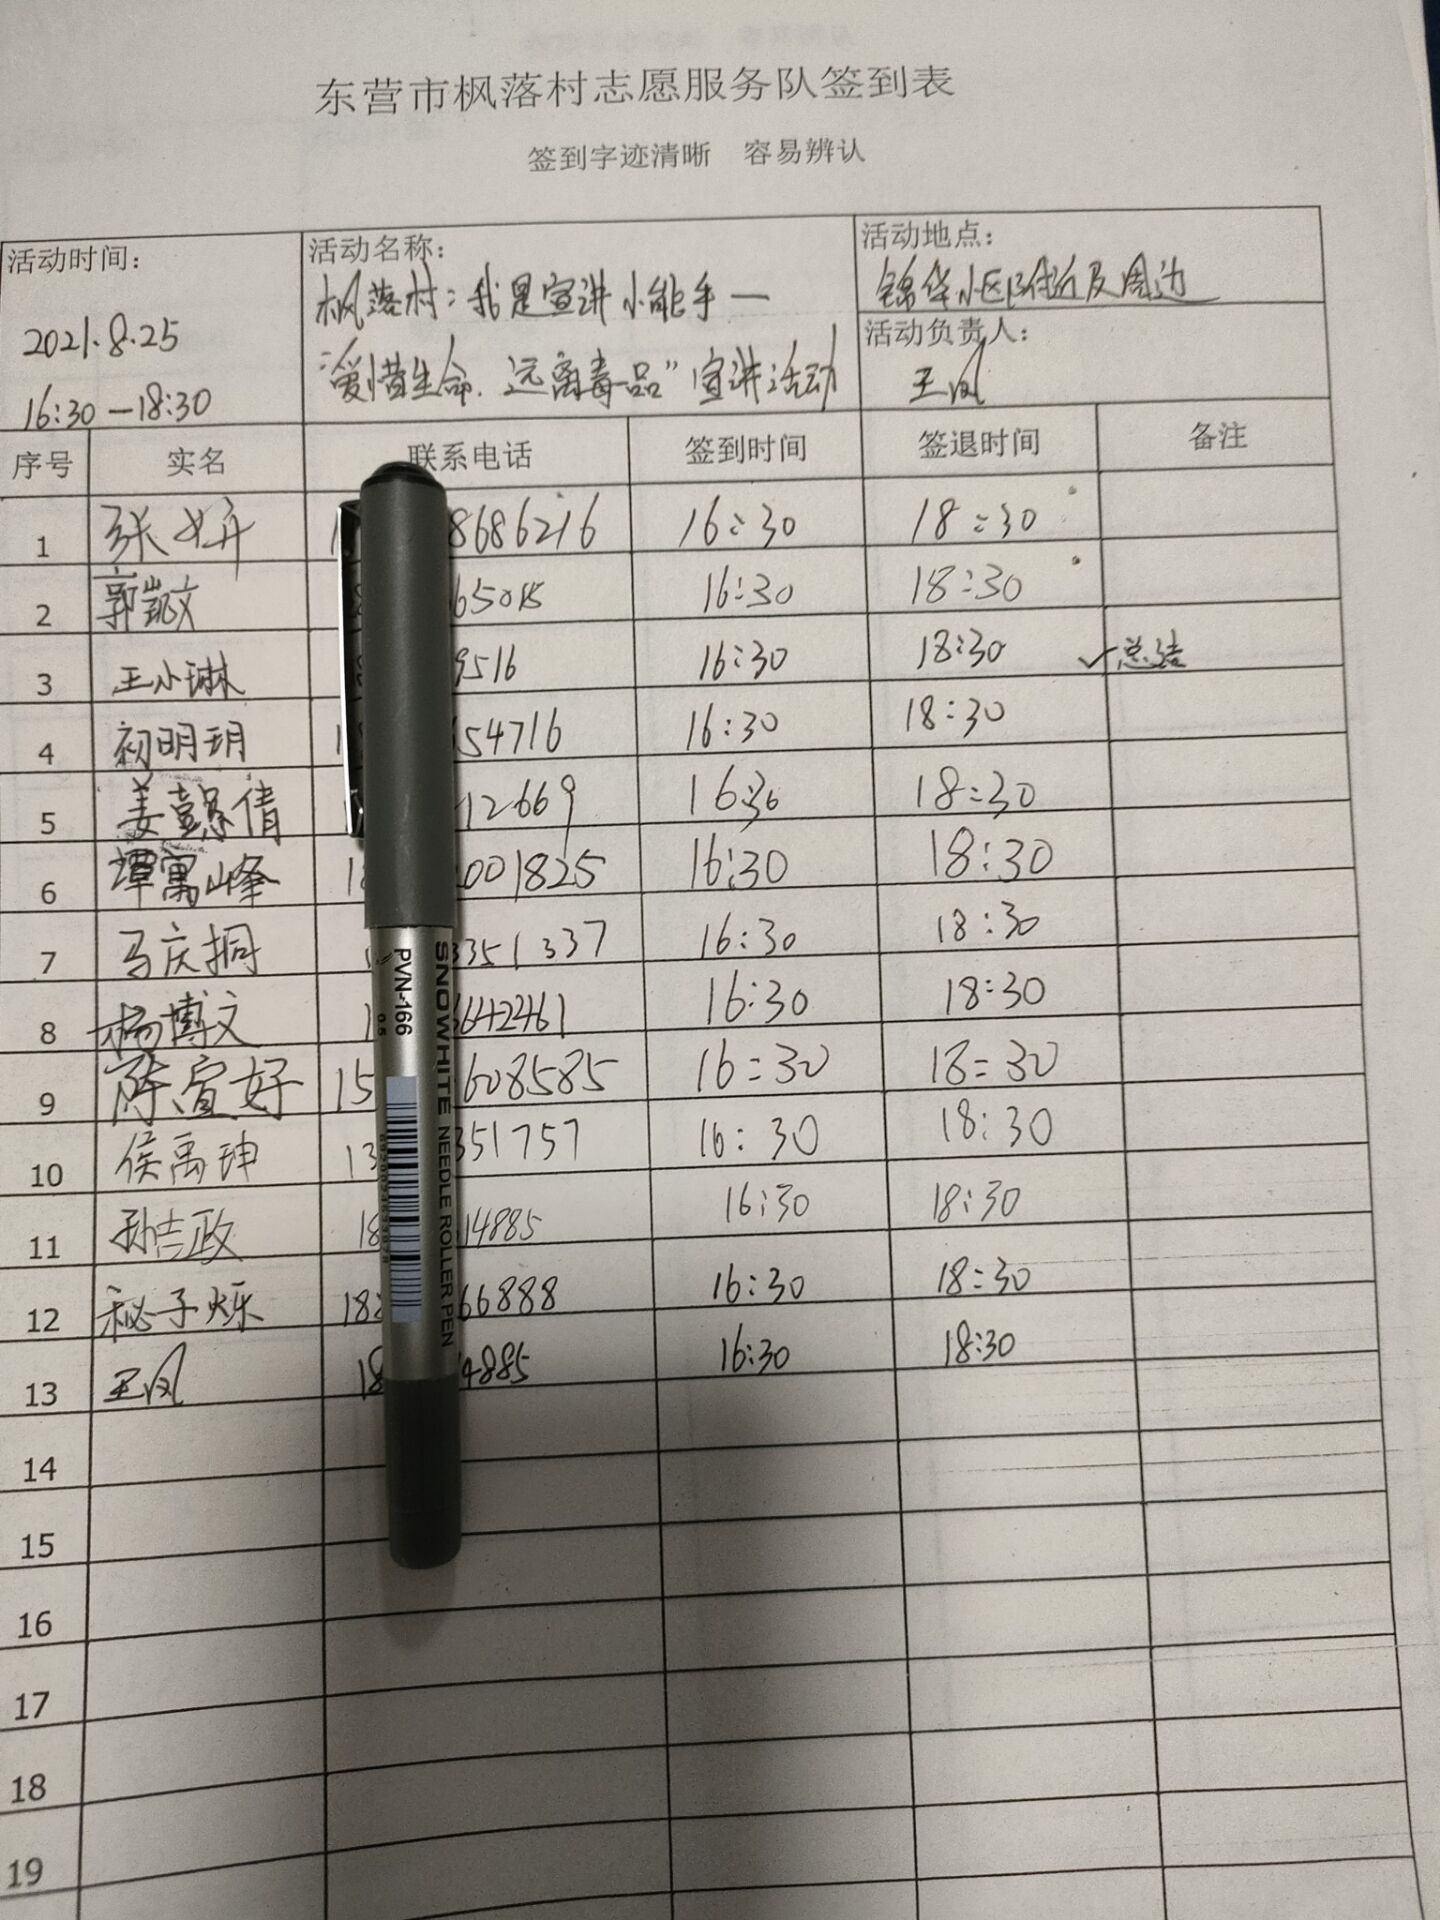 东营市枫落村志愿服务队签到表
签到字迹清晰 容易辨认
活动时间:
2021.8.25
16:30—18:30
活动名称:
枫落村:我是宣讲小能手—
“爱惜生命.远离毒品”宣讲活动
活动地点:
锦华小区附近及周边
活动负责人:
王凤
序号 实名 联系电话 签到时间 签退时间 备注
1 张妍 1 8686216 16:30 18:30
2 郭凯文 65015 16:30 18:30
3 王小琳 9516 16:30 18:30 √总结
4 初明玥 1 54716 16:30 18:30
5 姜 倩 12669 16:30 18:30
6 谭寓峰 18 001825 16:30 18:30
7 马庆桐 1 3351337 16:30 18:30
8 杨博文 1 6642461 16:30 18:30
9 陈宣好 15 608585 16:30 18:30
10 侯禹珅 13 351757 16:30 18:30
11 孙吉政 18 14885 16:30 18:30
12 秘子烁 188 66888 16:30 18:30
13 王凤 18 4885 16:30 18:30
14
15
16
17
18
19
SNOWHITE NEEDLE ROLLER PEN
PVN-166
0.5